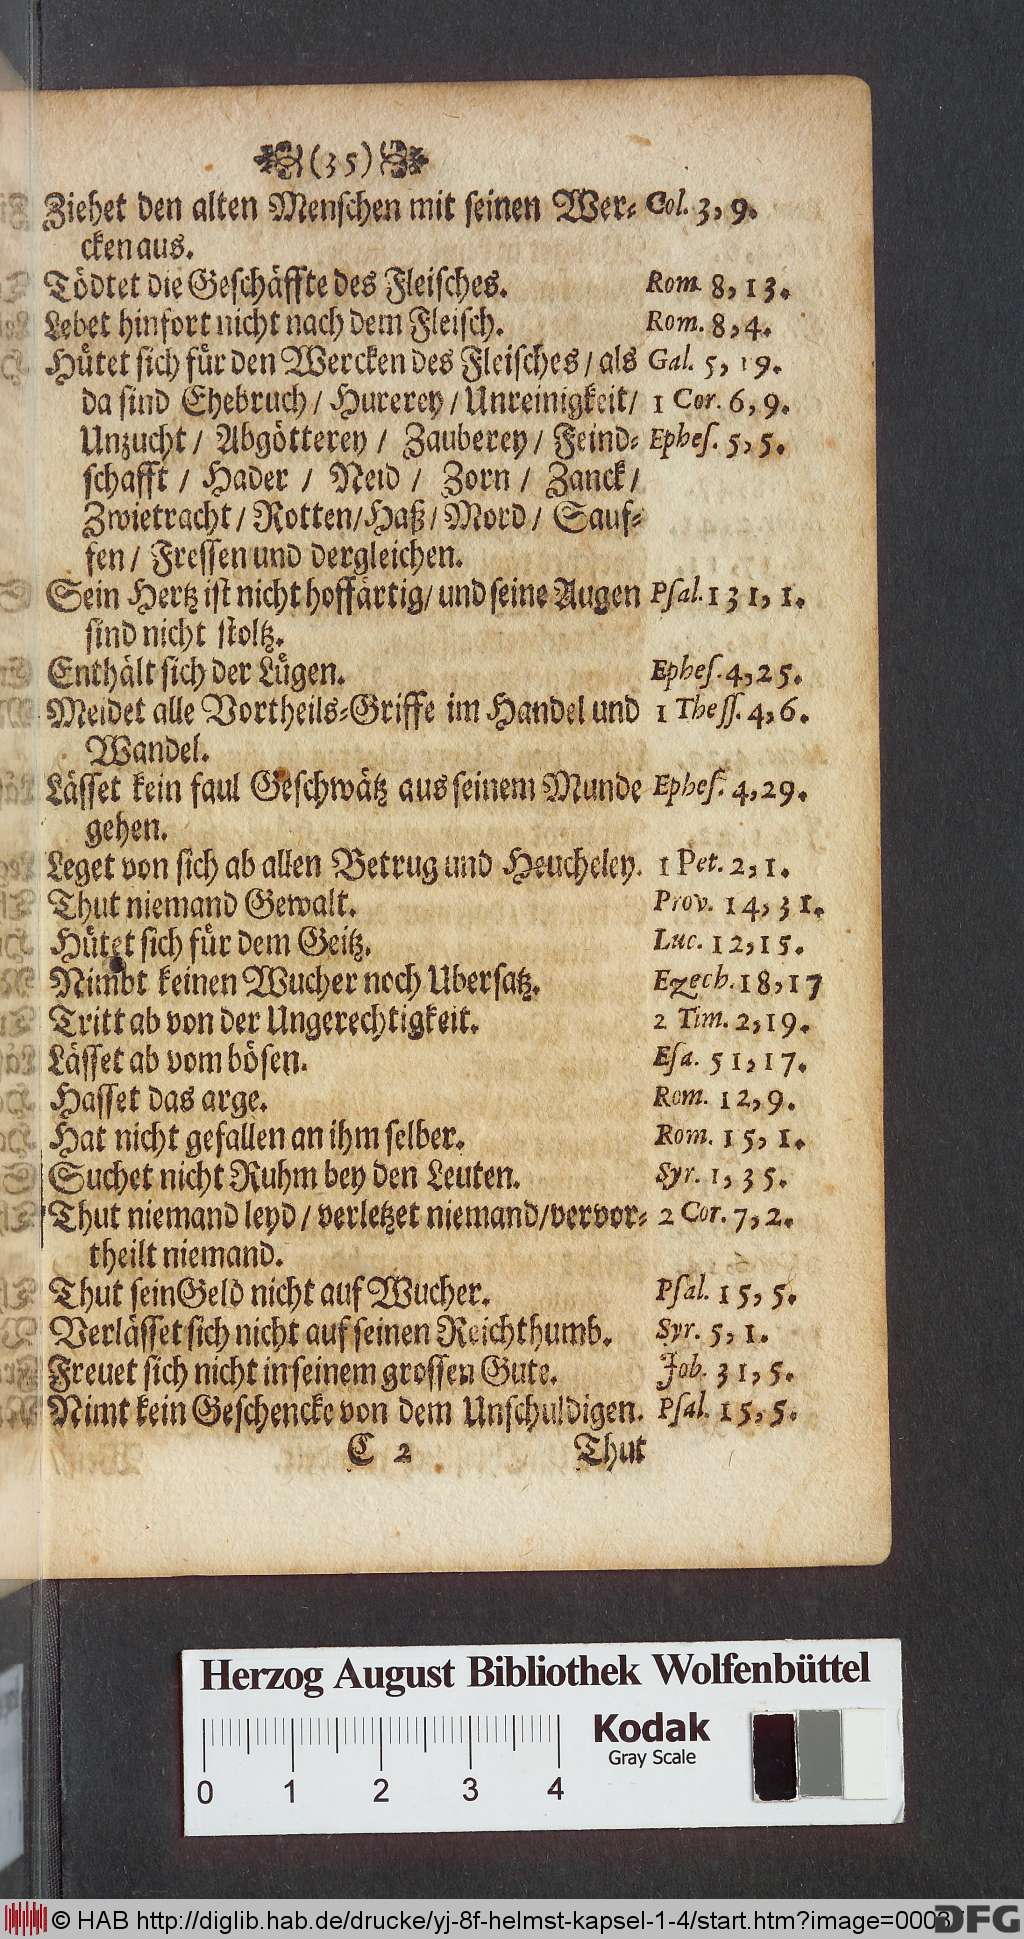 (35)
Ziehet den alten Menschen mit seinen Wer= Col. 3, 9.
cken aus.
Tödtet die Geschäffte des Fleisches. Rom. 8, 13.
Lebet hinfort nicht nach dem Fleisch. Rom. 8, 4.
Hütet sich für den Wercken des Fleisches / als Gal. 5, 19.
da sind Ehebruch / Hurerey / Unreinigkeit / 1 Cor. 6, 9.
Unzucht / Abgötterey / Zauberey / Feind= Ephes. 5, 5.
schafft / Hader / Neid / Zorn / Zanck /
Zwietracht / Rotten / Haß / Mord / Sauf=
fen / Fressen und dergleichen.
Sein Hertz ist nicht hoffärtig / und seine Augen Psal. 131, 1.
sind nicht stoltz.
Enthält sich der Lügen. Ephes. 4, 25.
Meidet alle Vortheils=Griffe im Handel und 1 Thess. 4, 6.
Wandel.
Lässet kein faul Geschwätz aus seinem Munde Ephes. 4, 29.
gehen.
Leget von sich ab allen Betrug und Heucheley. 1 Pet. 2, 1.
Thut niemand Gewalt. Prov. 14, 31.
Hütet sich für dem Geitz. Luc. 12, 15.
Nimbt keinen Wucher noch Ubersatz. Ezech. 18, 17
Tritt ab von der Ungerechtigkeit. 2 Tim. 2, 19.
Lässet ab vom bösen. Esa. 51, 17.
Hasset das arge. Rom. 12, 9.
Hat nicht gefallen an ihm selber. Rom. 15, 1.
Suchet nicht Ruhm bey den Leuten. Syr. 1, 35.
Thut niemand leyd / verletzet niemand / vervor= 2 Cor. 7, 2.
theilt niemand.
Thut sein Geld nicht auf Wucher. Psal. 15, 5.
Verlässet sich nicht auf seinen Reichthumb. Syr. 5, 1.
Freuet sich nicht in seinem grossen Gute. Job. 31, 5.
Nimt kein Geschencke von dem Unschuldigen. Psal. 15, 5.
C 2 Thut
Herzog August Bibliothek Wolfenbüttel
Kodak
Gray Scale
0 1 2 3 4
© HAB http://diglib.hab.de/drucke/yj-8f-helmst-kapsel-1-4/start.htm?image=0003
DFG